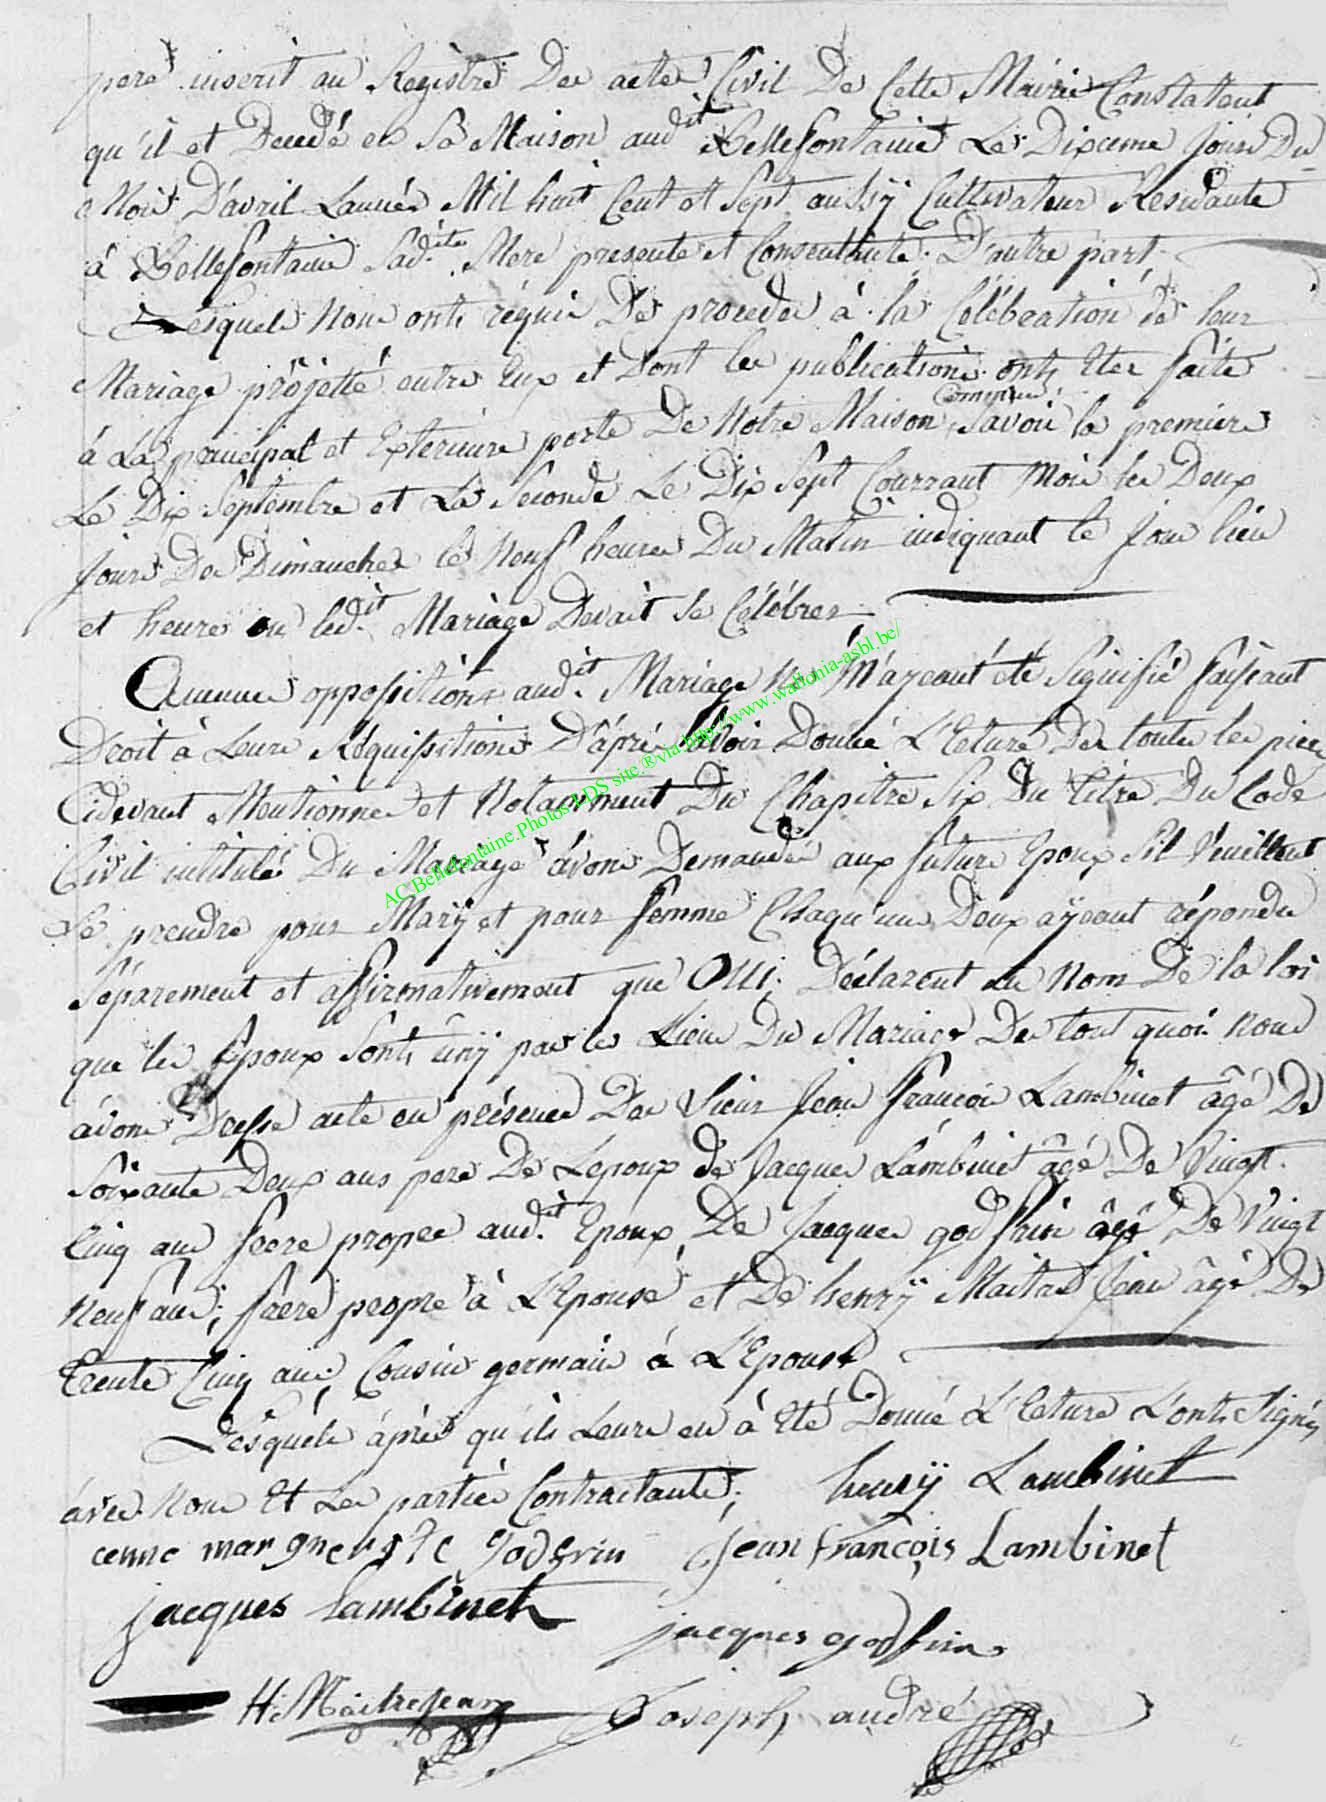 pere inscrit au Registre Des actes Civil De Cette Mairie Constatant
qu'il et Decedé en Sa Maison audit Bellefontaine Le Dixieme jour Du
Mois D'avril Lannée Mil huit Cent et Sept aussÿ Cultivateur Residante
à Bellefontaine Sadite Mere presente et Consenthante D'autre part
Lesquels Nous onts réquis De proceder à la Célébration de leur
Mariage projetté entre Eux et Dont les publications onts Etee faite
à La principal et Exterieure porte De Notre Maison Commune Savoir la premiere
Le Dix Septembre et La Seconde Le Dix Sept Courrant Mois les Deux
jours De Dimanches le Neuf heures Du Matin indiquant le jour lieu
et heure ou ledit Mariage Devait Se Célébrer
Aucune opposition audit Mariage Ne M'ayeant été Signifié faisant
Droit à Leure Réquisitions D'áprés avoir Donné L'Eture De toute les pieces
Cidevant Mentionne et Notamment Du Chapitre Six du titre Du Code
Civil intitulé Du Mariage avons Demandé aux future Epoux Sil Veuillent
Se prendre pour Marÿ et pour femme Chaqu'un Deux aÿeant répondu
Séparement et affirmativement que Oui; Déclarent au Nom De la loi
que les Epoux Sonts ûnÿ par les Liens Du Mariage De tout quoi Nous
avons Dresse acte en présence De Sieur Jean françois Lambinet âgé De
Soixante Deux ans pere De Lepoux de Jacques Lambinet âgé De Vingt
Cinq ans frere propre audit Epoux, De Jacques godfrin âgé De Vingt
Neuf ans; frere propre à L'Epouse et De henrÿ Maitre Jean âgé De
Trente Cinq ans Cousin germain à L'Epouse
Lésquéls áprés qu'ils Leure en à Eté Donné L'Ecture L'onts Signés
ávec Nous Et Les partiés Contractante; henrÿ Lambinet
cenne marguerite godfrin jean françois Lambinet
jacques Lambinet
jacques godfrin
H. Maitrejean Joseph andré
AC.Bellefontaine.Photos LDS site ®via http://www.wallonia-asbl.be/